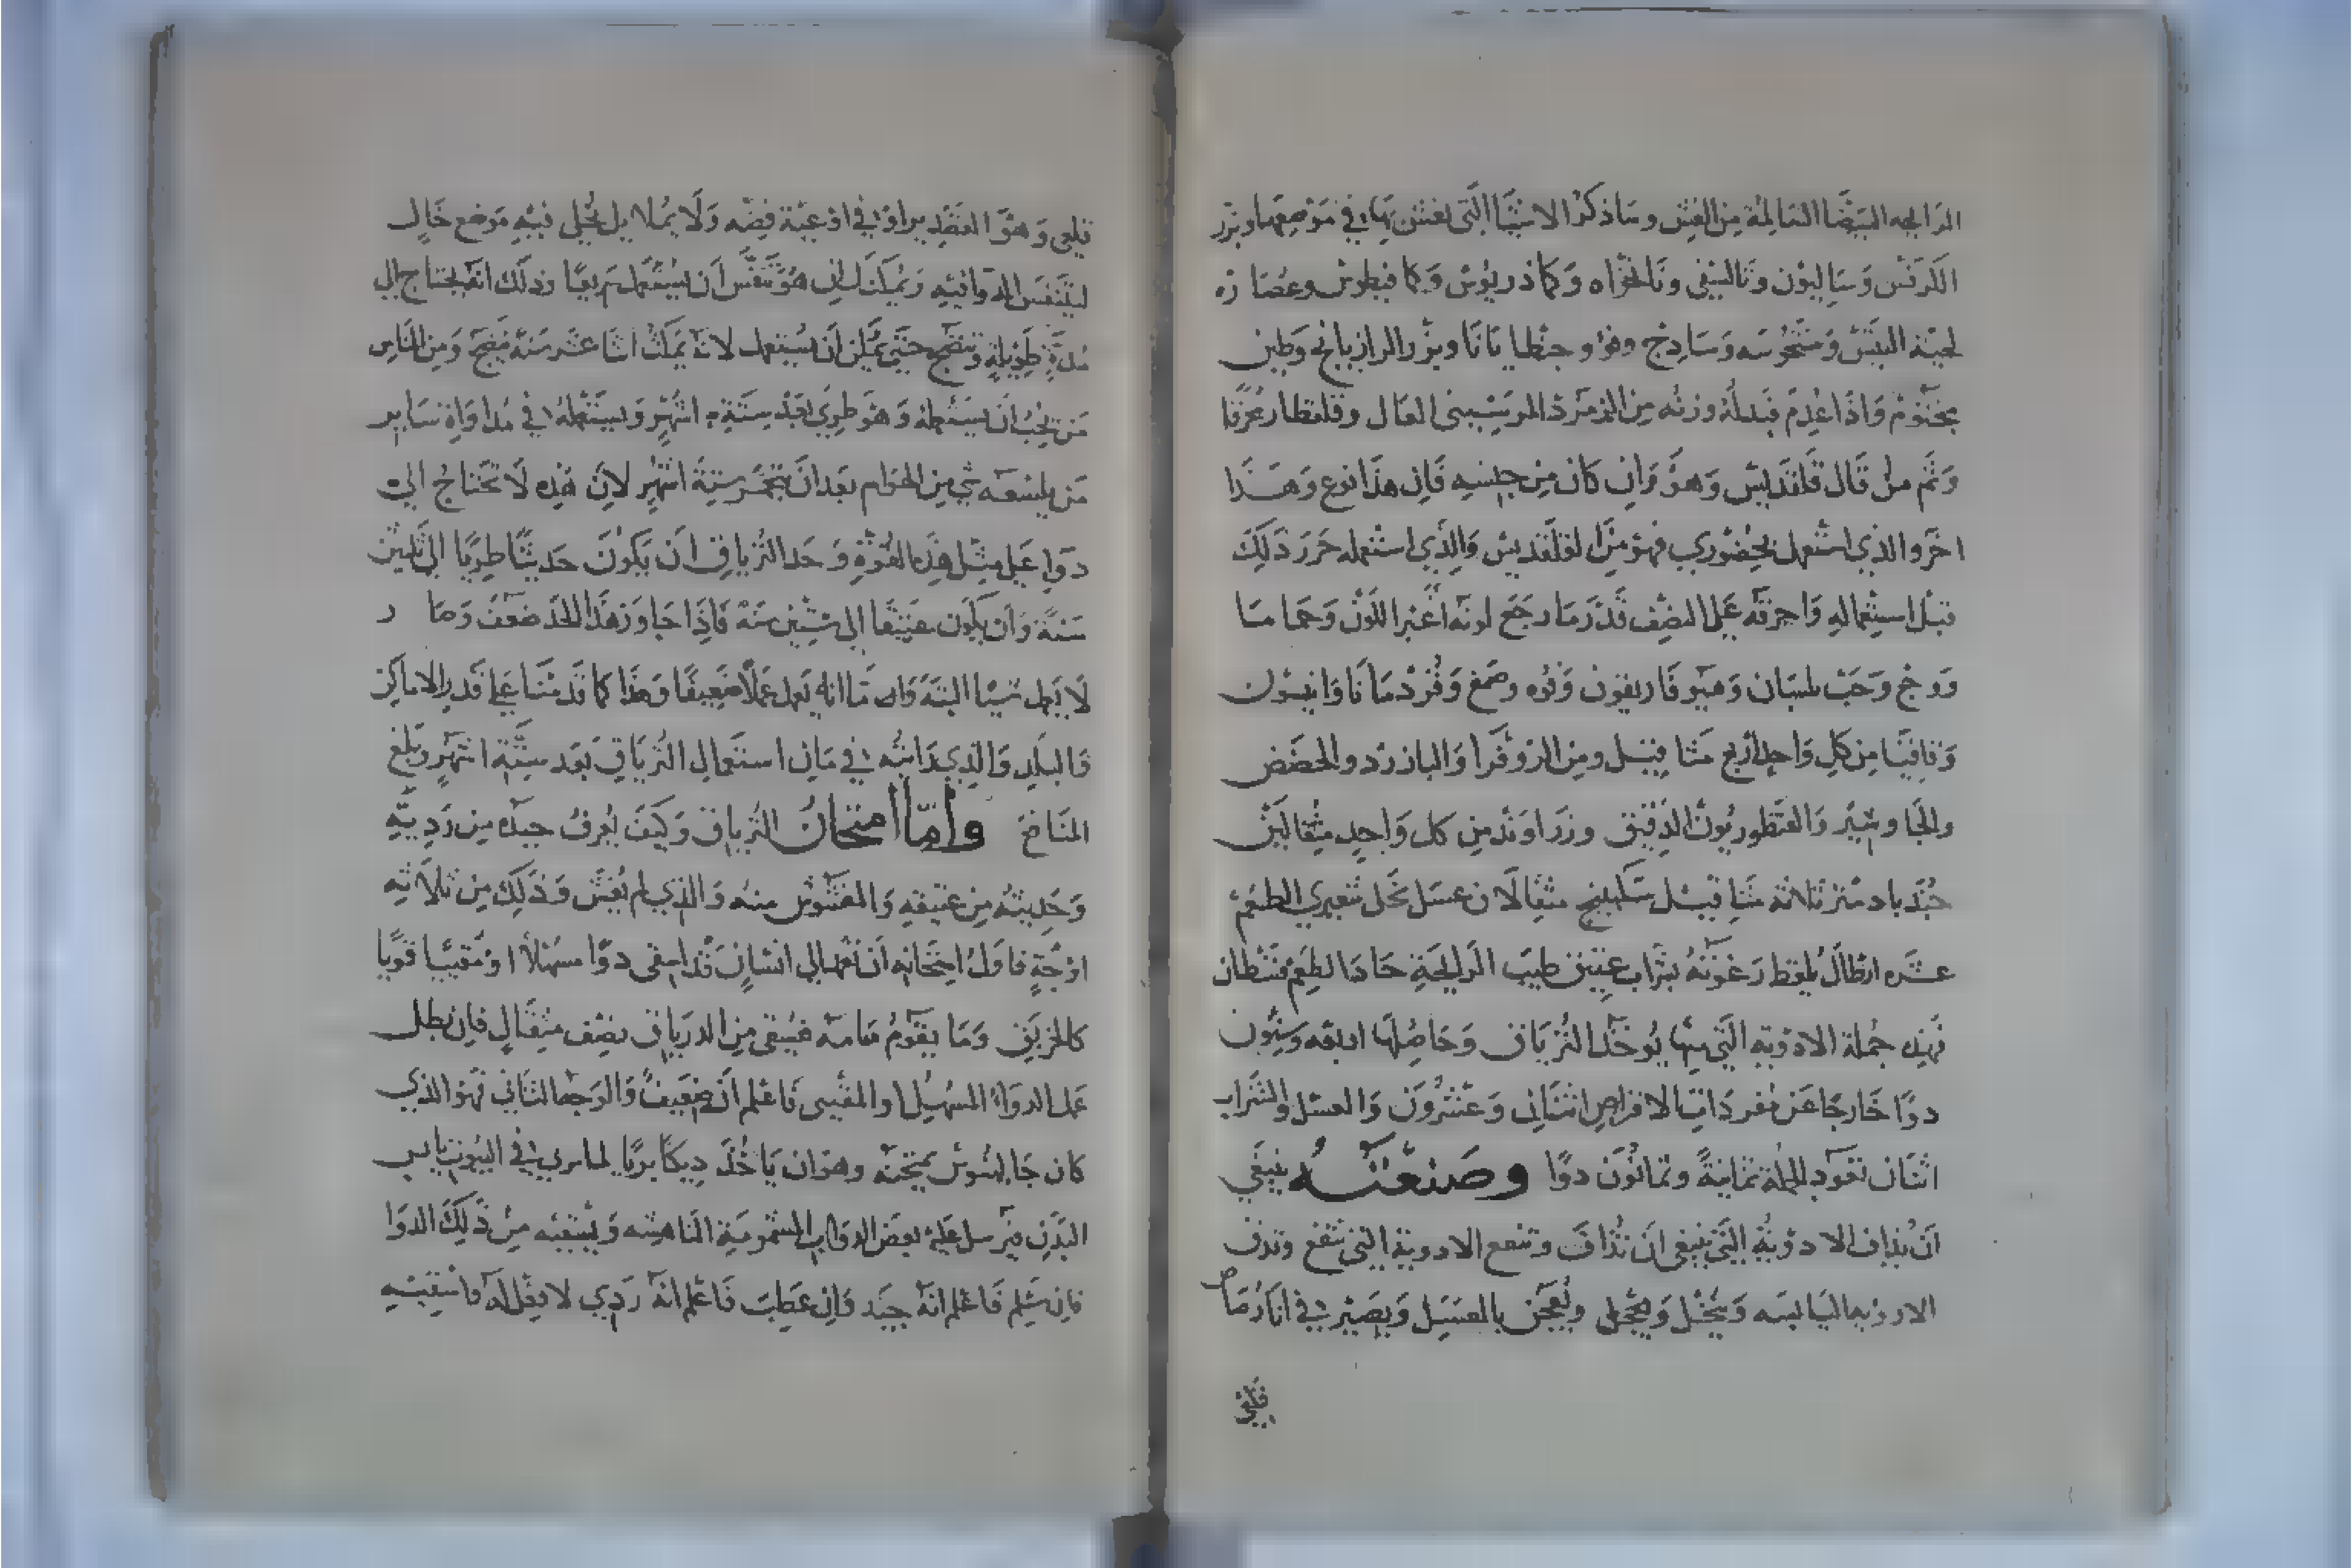 الرايحه البيضا السالمة من الغش وساذكر الاشيا التى تغش بها في موضعها وبزر
الكرفس وساليون وثالسفى ونانخواه وكماذريوس وكمافيطوس وعصارة
لحية التيس وسادج ومو وجنطيانا وبزر الرازيانج وطين
مختوم واذا عدم فبدله وزنه من الزمرد العال وقلقطار محرقا
وثم من قال قلقديس وهو وان كان من جنسه فان هذا نوع وهذا
اخر والذي استعمل بحضوري فهو من القلقديس والذي استعمله حرر ذلك
قبل استعماله واحرقه على النصف قدر ما رجع لونه اغبر اللون وحماما
ووج وحب بلسان وهيوفاريقون وفوه وصمغ وقردمانا وانيسون
وقاقيا من كل واحد اربع مثاقيل ومن الدوقوا والبازرد والحضض
والجاوشير والقنطوريون الدقيق وزراوند من كل واحد مثقالين
جندبادستر ثلاثة مثاقيل سكبينج مثقالان عسل نحل شعيري الطعم
عشره ارطال يلقط رغوته بشراب عتيق طيب الرايحة حاد الطعم قسطان
فهذه جملة الادوية التي منها يوخذ الترياق وحاصلها اربعه وستون
دوا خارجا عن مفردات الاقراص اثنان وعشرون والعسل والشراب
اثنان تعود الجملة ثمانية وثمانون دوا وصنعته ينبغي
ان تذاف الادوية التي ينبغى ان تذاف وتنقع الادوية التى تنقع وتدق
الادويه اليابسه وتنخل وتعجن بالعسل ويصير في انا رصاص
قلعى
قلعى وهو القصدير او في اوعية فضه ولا يملا بل يخلى فيه موضع خال
ليتنفس الدوا فيه ويمكن لمن هو ان يستعمل سريعا وذلك انه يحتاج الى
مدة طويلة وينضج حتى يمكن ان يستعمل لانه يمكث اثنا عشر سنة ينضج ومن الناس
من يحب ان يستعمله وهو طري بعد ستة اشهر ويستعمله في مداواة ساير
من يلسعه شي من الهوام بعد ان يتخمر ستة اشهر لان هذه لا تحتاج الى
دوا على مثل هذه القوة وحد الترياق ان يكون حديثا طريا الى ثلثين
سنة وان يكون عتيقا الى ستين سنه فاذا جاوز هذا الحد ضعف وصار
لا يعمل شيا البتة وان ما انه يعمل عملا ضعيفا وهذا كما قدمنا على قدر الاماكن
والبلد والذي رايته في استعمال الترياق بعد ستة اشهر ويبلغ
المنافع واما امتحان الترياق وكيف يعرف جيده من رديه
وحديثه من عتيقه والمغشوش منه والذي لم يغش وذلك من ثلاثه
اوجه فاول امتحانه ان تعمد الى انسان قد اسقى دوا مسهلا او مقييا قويا
كالخربق وما يقوم مقامه فيسقى من الدرياق نصف مثقال فان بطل
عمل الدواء المسهل او المقيى فاعلم ان ضعيف والوجه الثاني فهو الذي
كان جالينوس يمتحنه وهو ان ياخذ ديكا بريا لما يربى في البيوت يابس
البدن فيرسل عليه بعض الدواب المسمومية الناهشه ويسقيه من ذلك الدوا
فان سلم فاعلم انه جيد وان عطب فاعلم انه ردي لا يفعل له ما سقيته